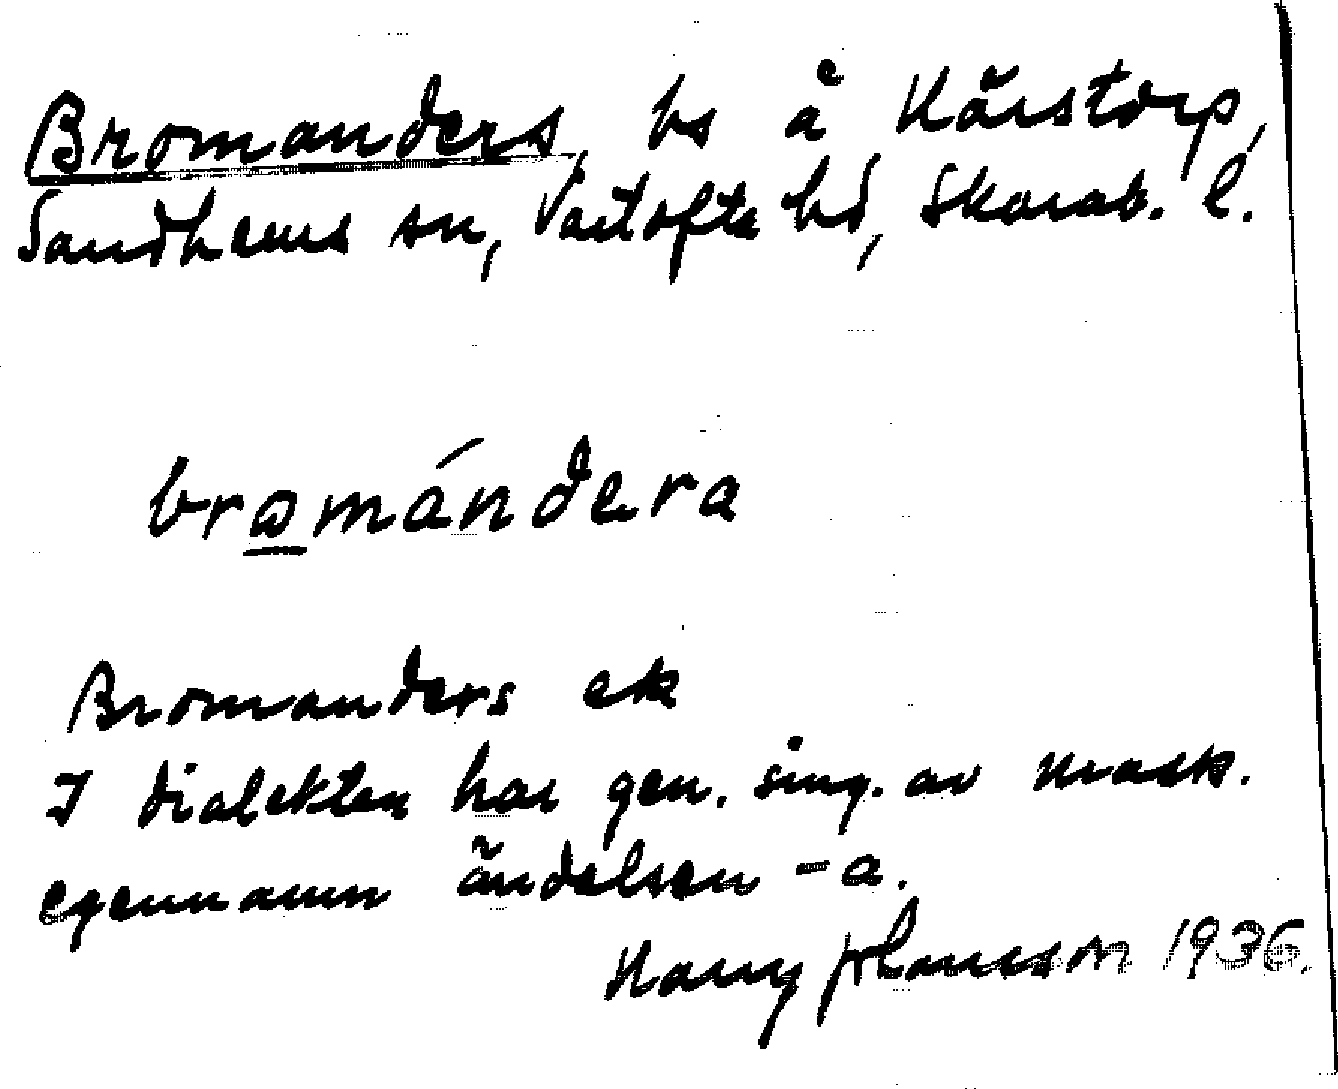 Bromanders, bs å Kärstorp,
Sandhems sn, Vartofte hd, Skarab. l.
bromándera
Bromanders ek
I dialekten har gen. sing. av mask.
egennamn ändelsen -a.
Harry Johansson 1936.